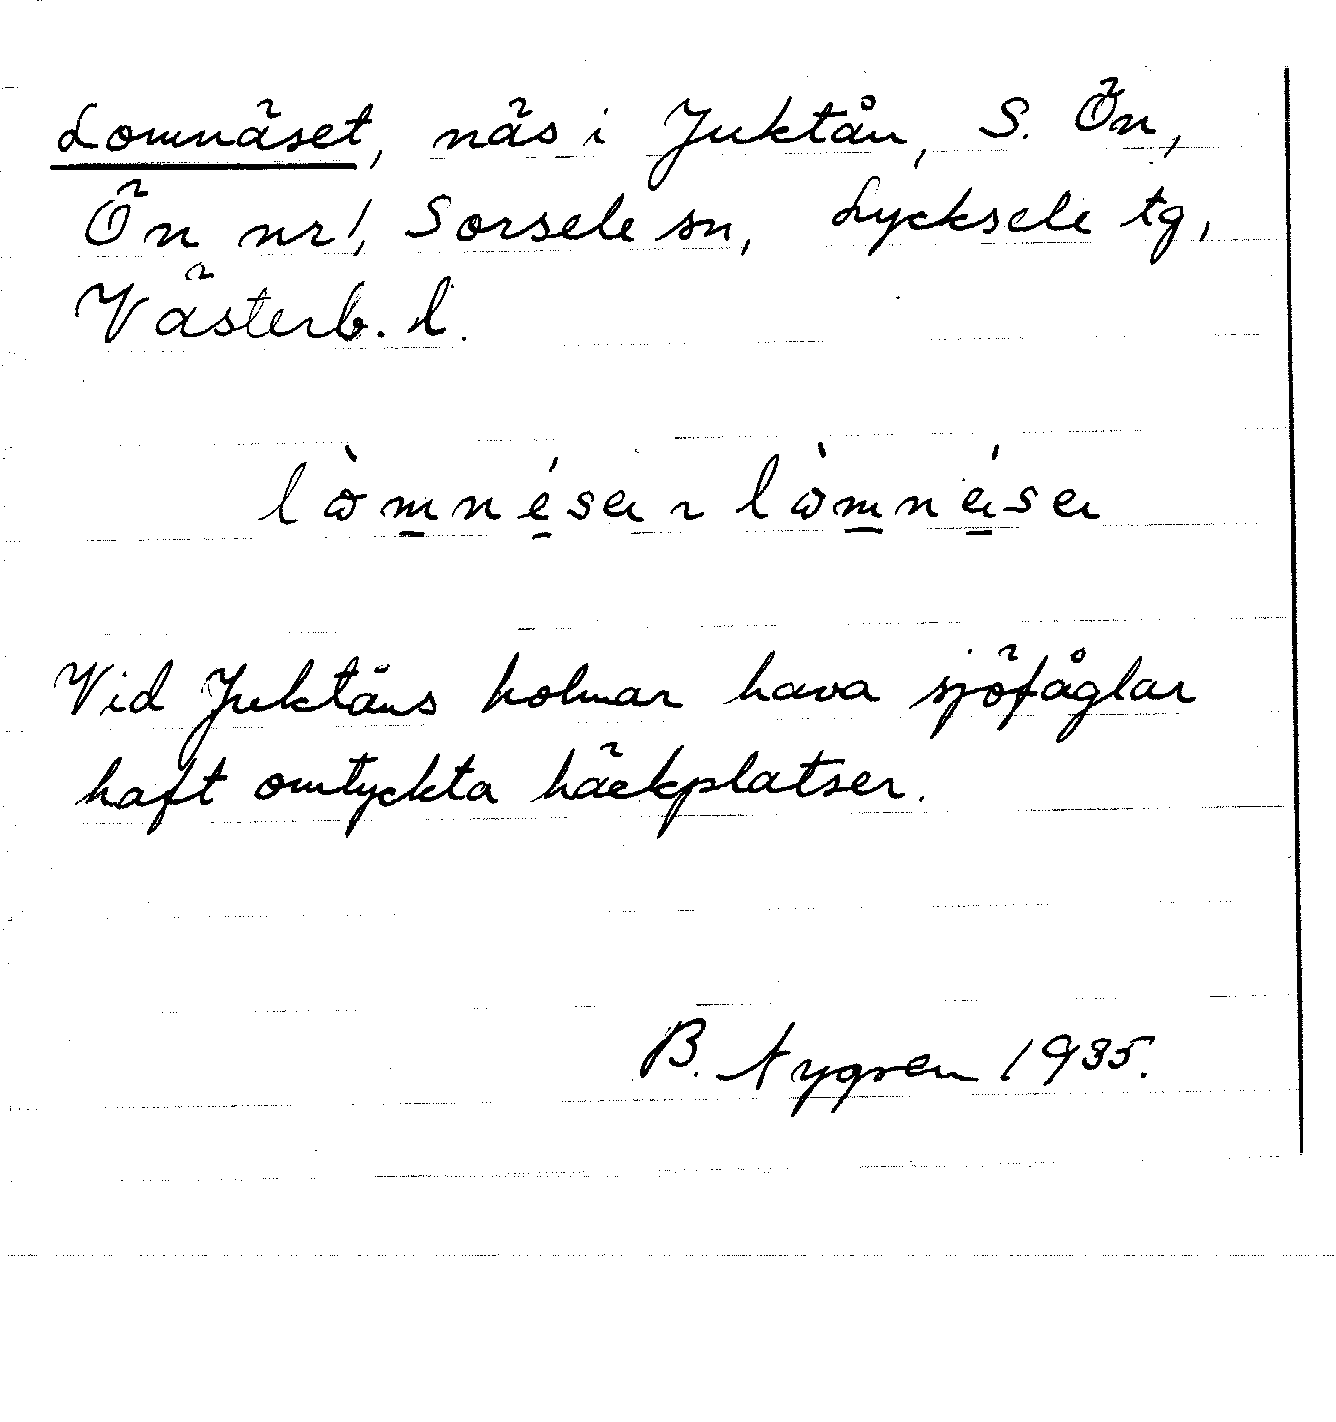 Lomnäset, näs i Juktån, S. Ön,
Ön nr 1, Sorsele sn, Lycksele tg,
Västerb. l.
lòmnéser ~ lòmnéser
Vid Juktåns holmar hava sjöfåglar
haft omtyckta häckplatser.
B. Nygren 1935.